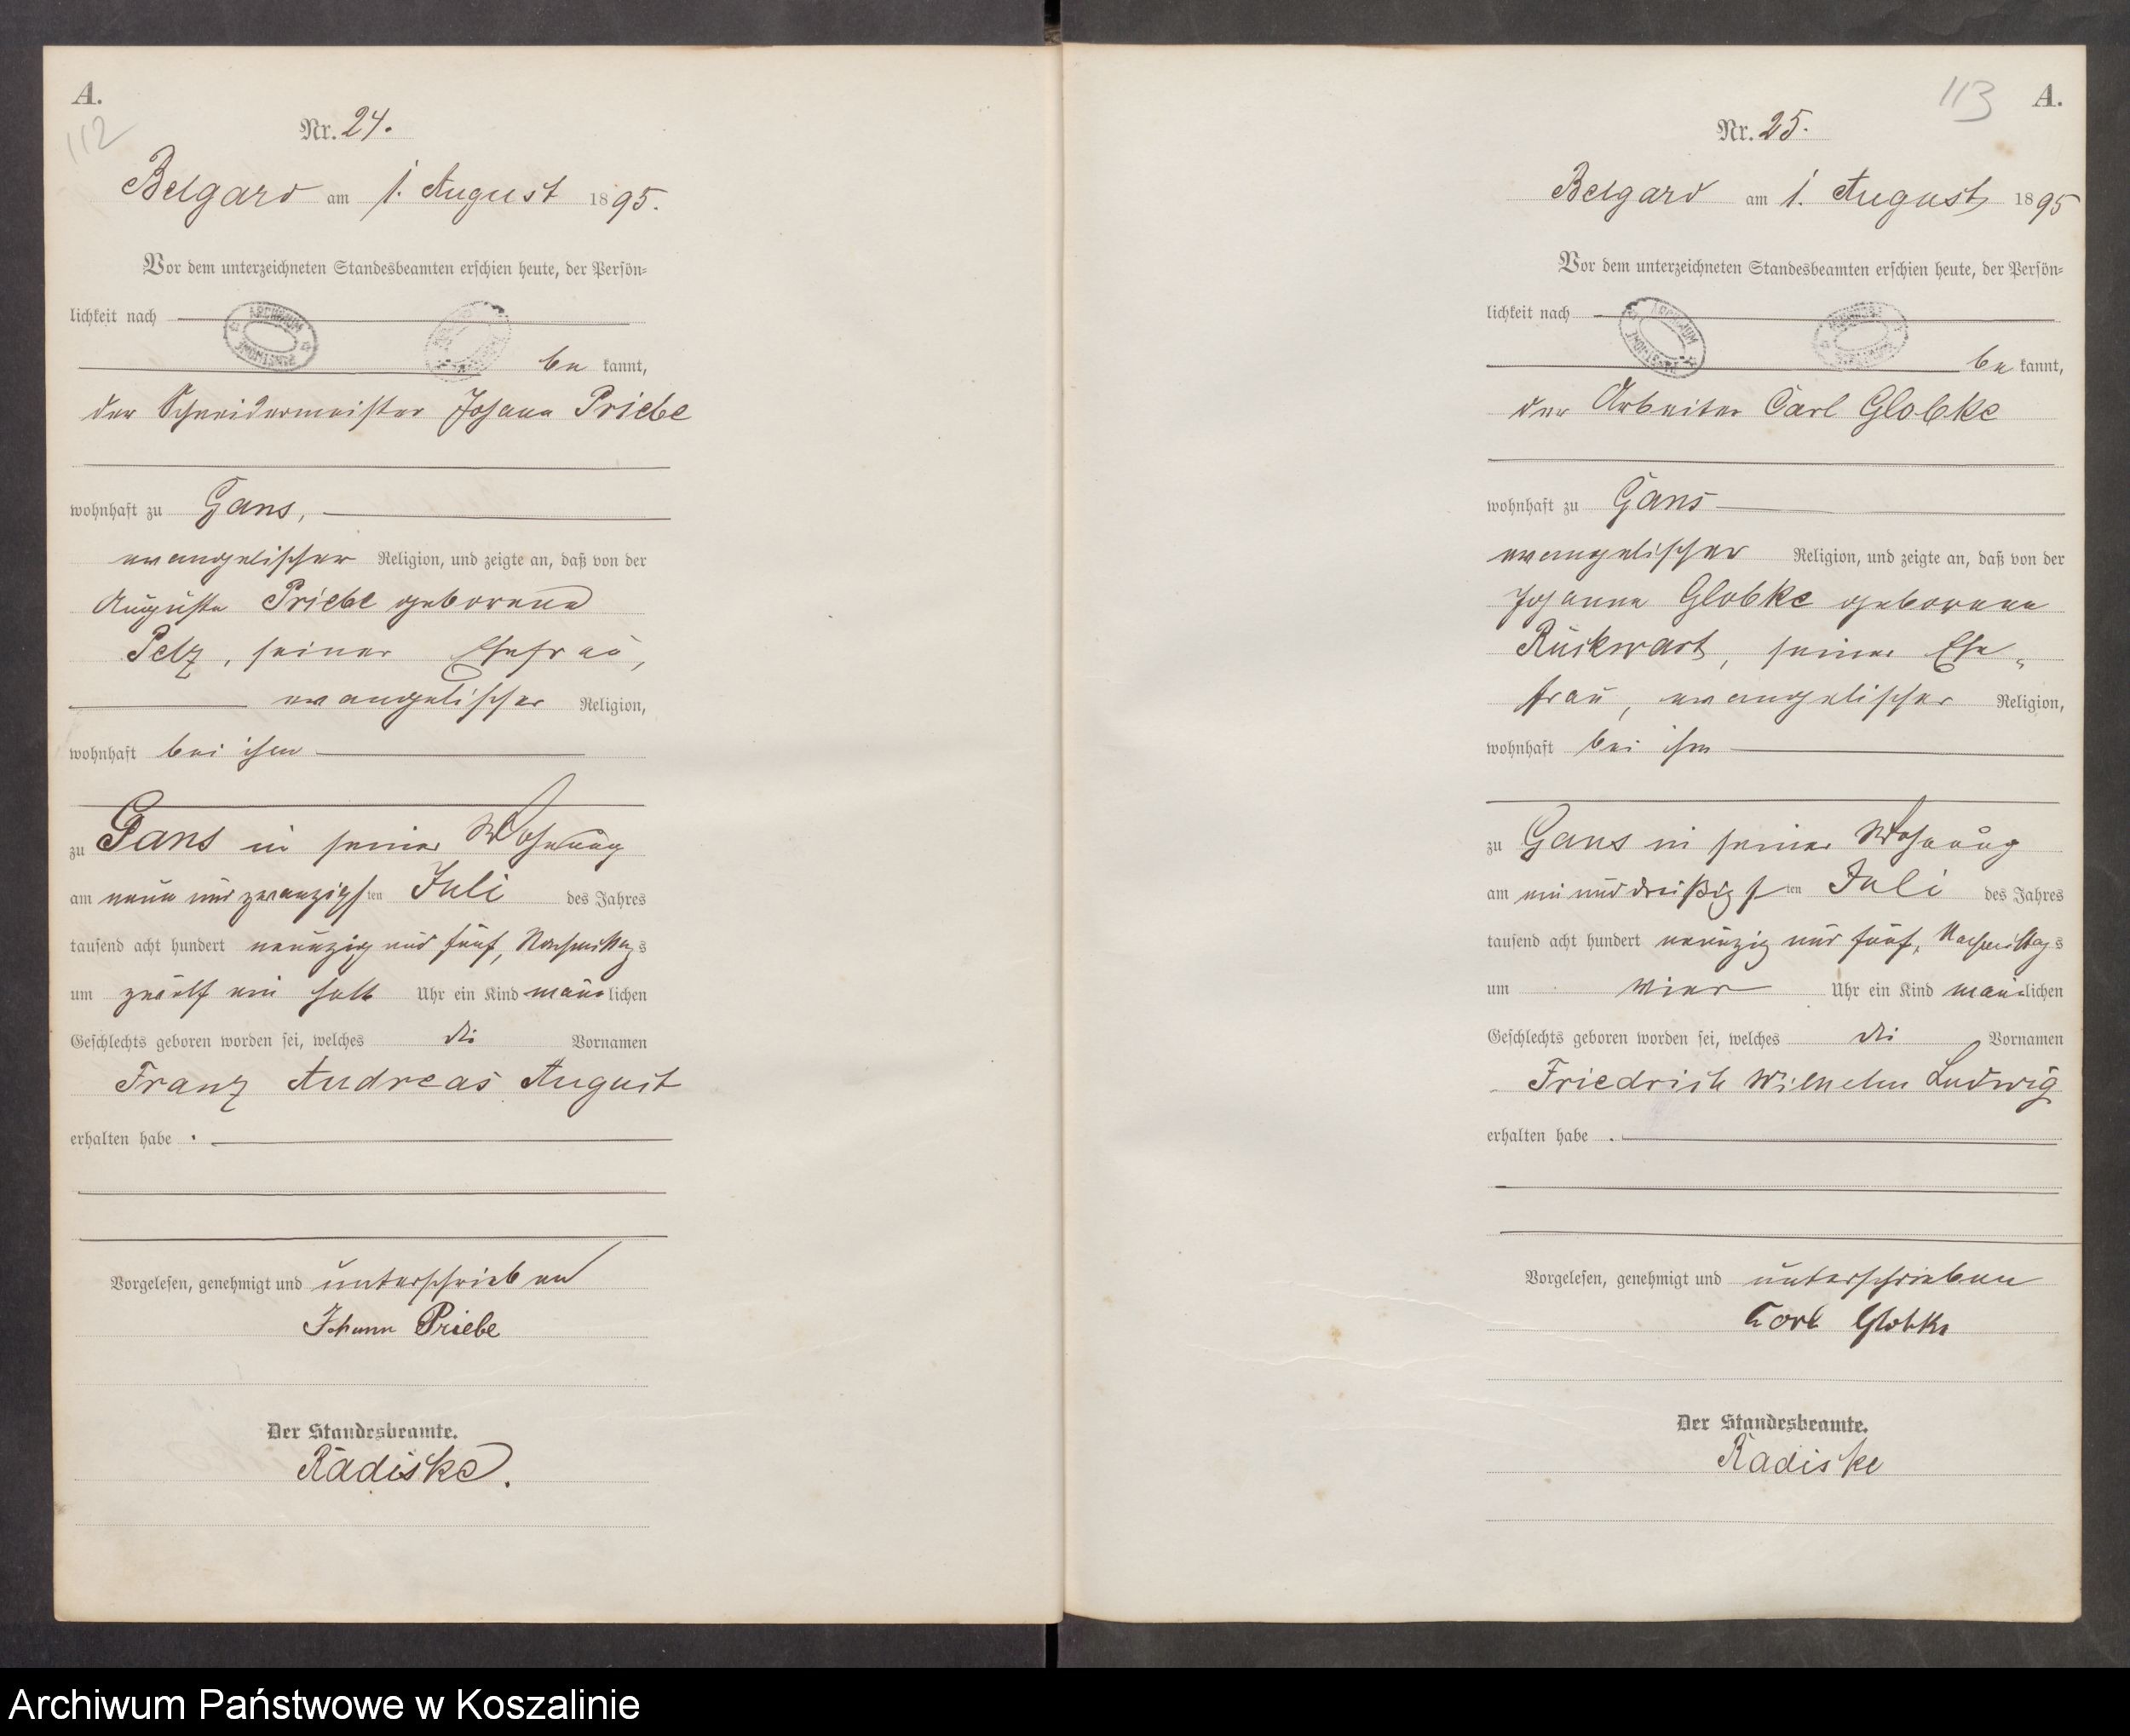 A.
112
Nr. 24.
Belgard am 1. August 1895.
Vor dem unterzeichneten Standesbeamten erschien heute, der Persön=
lichkeit nach
ARCHIWUM PAŃSTWOWE
be kannt,
der Schneidermeister Johann Priebe
wohnhaft zu Gans,
evangelischer Religion, und zeigte an, daß von der
Auguste Priebe geborene
Pelz, seiner Ehefrau,
evangelischer Religion,
wohnhaft bei ihm
zu Gans in seiner Wohnung
am neun und zwanzigsten Juli des Jahres
tausend acht hundert neunzig und fünf, Nachmittags
um zwölf ein halb Uhr ein Kind männlichen
Geschlechts geboren worden sei, welches die Vornamen
Franz Andreas August
erhalten habe.
Vorgelesen, genehmigt und unterschrieben
Johann Priebe
Der Standesbeamte.
Radiske.
113 A.
Nr. 25.
Belgard am 1. August 1895
Vor dem unterzeichneten Standesbeamten erschien heute, der Persön=
lichkeit nach
ARCHIWUM PAŃSTWOWE
be kannt,
der Arbeiter Carl Globke
wohnhaft zu Gans
evangelischer Religion, und zeigte an, daß von der
Johanne Globke geborene
Rückwart, seiner Ehe-
frau, evangelischer Religion,
wohnhaft bei ihm
zu Gans in seiner Wohnung
am ein und dreißigsten Juli des Jahres
tausend acht hundert neunzig und fünf, Nachmittags
um vier Uhr ein Kind männlichen
Geschlechts geboren worden sei, welches die Vornamen
Friedrich Wilhelm Ludwig
erhalten habe.
Vorgelesen, genehmigt und unterschrieben
Carl Globke
Der Standesbeamte.
Radiske
Archiwum Państwowe w Koszalinie